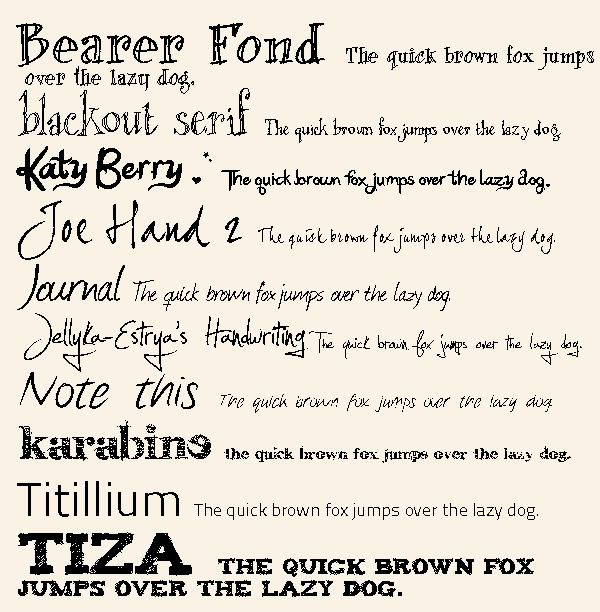 Bearer Fond The quick brown fox jumps
over the lazy dog.
blackout serif The quick brown fox jumps over the lazy dog.
Katy Berry The quick brown fox jumps over the lazy dog.
Joe Hand 2 The quick brown fox jumps over the lazy dog.
Journal The quick brown fox jumps over the lazy dog.
Jellyka-Estrya's Handwriting The quick brown fox jumps over the lazy dog.
Note this The quick brown fox jumps over the lazy dog.
karabine the quick brown fox jumps over the lazy dog.
Titillium The quick brown fox jumps over the lazy dog.
TIZA THE QUICK BROWN FOX
JUMPS OVER THE LAZY DOG.